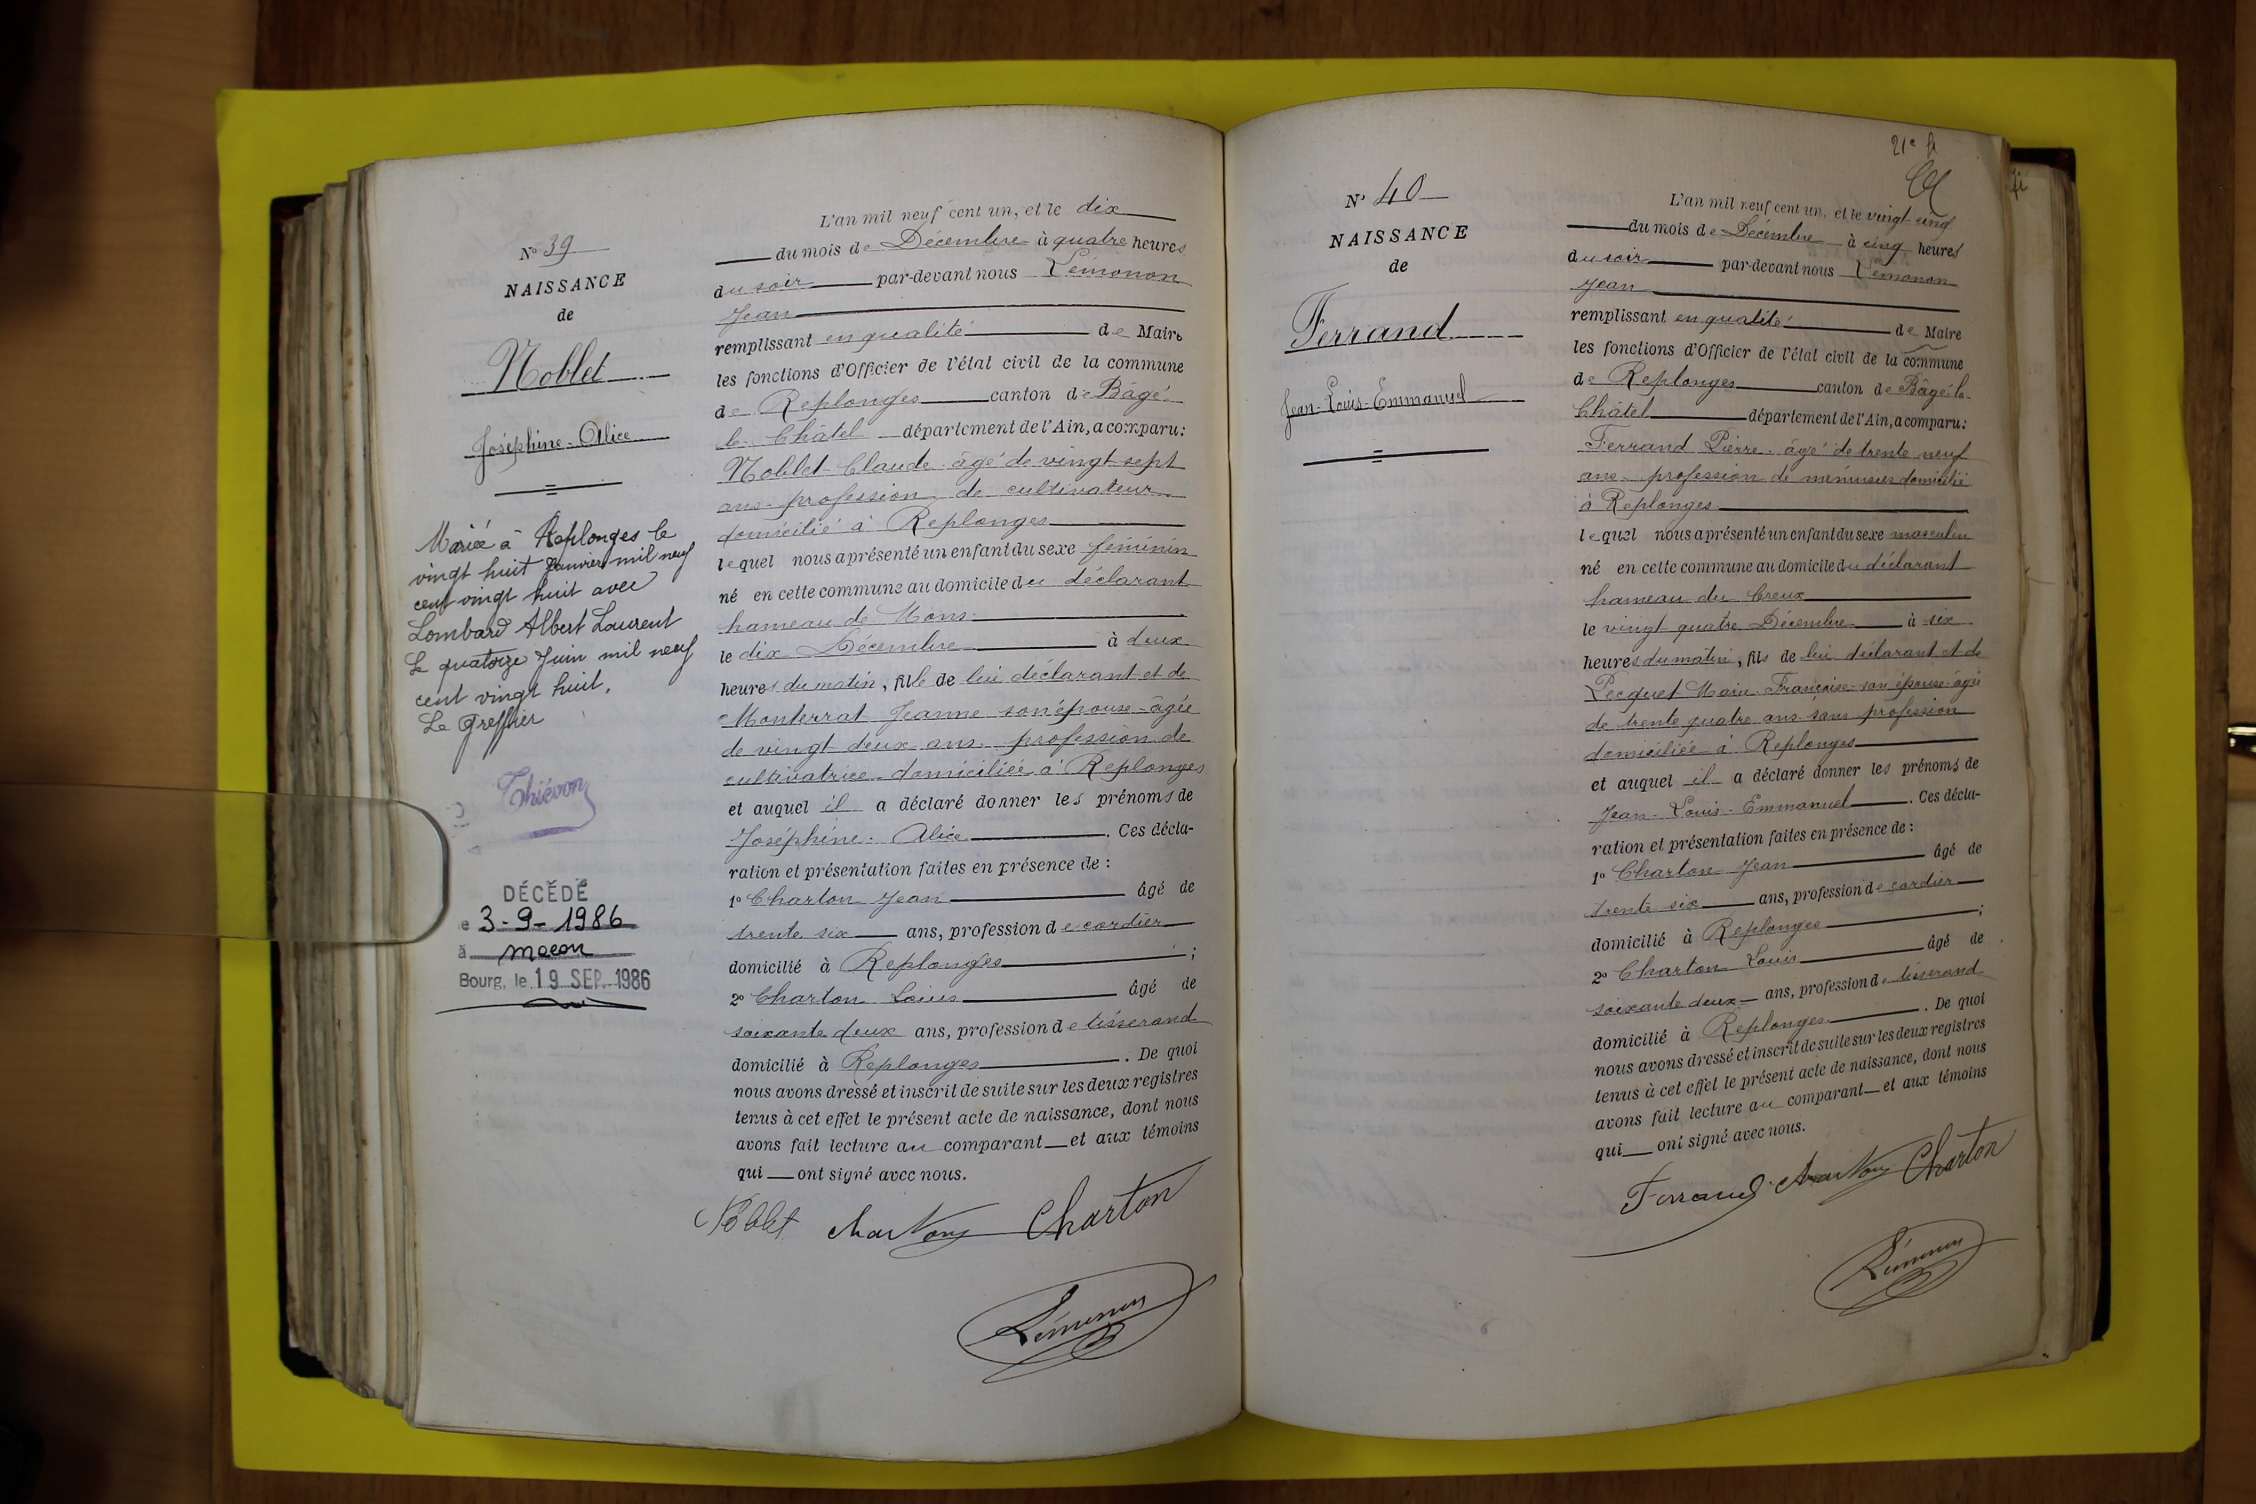 N° 39
NAISSANCE
de
Noblet
Joséphine-Alice
Mariée à Replonges le
vingt huit Janvier mil neuf
cent vingt huit avec
Lombard Albert Laurent
Le quatorze Juin mil neuf
cent vingt huit.
Le Greffier
Thiévon
DÉCÉDÉ
e 3-9-1986
à macon
Bourg, le 19 SEP. 1986
L'an mil neuf cent un, et le dix
du mois de Décembre à quatre heures
du soir par-devant nous Lémonon
Jean
remplissant en qualité de Maire
les fonctions d'Officier de l'état civil de la commune
de Replonges canton de Bâgé
le Châtel département de l'Ain, a comparu:
Noblet Claude âgé de vingt sept
ans profession de cultivateur
domicilié à Replonges
lequel nous a présenté un enfant du sexe féminin
né en cette commune au domicile du déclarant
hameau de Mons
le dix Décembre à deux
heures du matin, fille de lui déclarant et de
Monterrat Jeanne son épouse âgée
de vingt deux ans profession de
cultivatrice domiciliée à Replonges
et auquel il a déclaré donner les prénoms de
Joséphine-Alice. Ces décla-
ration et présentation faites en présence de :
1° Charton Jean âgé de
trente six ans, profession de cordier
domicilié à Replonges ;
2° Charton Louis âgé de
soixante deux ans, profession de tisserand
domicilié à Replonges. De quoi
nous avons dressé et inscrit de suite sur les deux registres
tenus à cet effet le présent acte de naissance, dont nous
avons fait lecture au comparant et aux témoins
qui ont signé avec nous.
Noblet Charton Charton
Lémonon
21e
N° 40
NAISSANCE
de
Ferrand
Jean-Louis-Emmanuel
L'an mil neuf cent un, et le vingt cinq
du mois de Décembre à cinq heures
du soir par-devant nous Lémonon
Jean
remplissant en qualité de Maire
les fonctions d'Officier de l'état civil de la commune
de Replonges canton de Bâgé le
Châtel département de l'Ain, a comparu:
Ferrand Pierre âgé de trente neuf
ans profession de menuisier domicilié
à Replonges
lequel nous a présenté un enfant du sexe masculin
né en cette commune au domicile du déclarant
hameau du Creux
le vingt quatre Décembre à six
heures du matin, fils de lui déclarant et de
Pecquet Marie Françoise son épouse âgée
de trente quatre ans sans profession
domiciliée à Replonges
et auquel il a déclaré donner les prénoms de
Jean-Louis-Emmanuel. Ces décla-
ration et présentation faites en présence de :
1° Charton Jean âgé de
trente six ans, profession de cordier
domicilié à Replonges ;
2° Charton Louis âgé de
soixante deux ans, profession de tisserand
domicilié à Replonges. De quoi
nous avons dressé et inscrit de suite sur les deux registres
tenus à cet effet le présent acte de naissance, dont nous
avons fait lecture au comparant et aux témoins
qui ont signé avec nous.
Ferrand Charton Charton
Lémonon